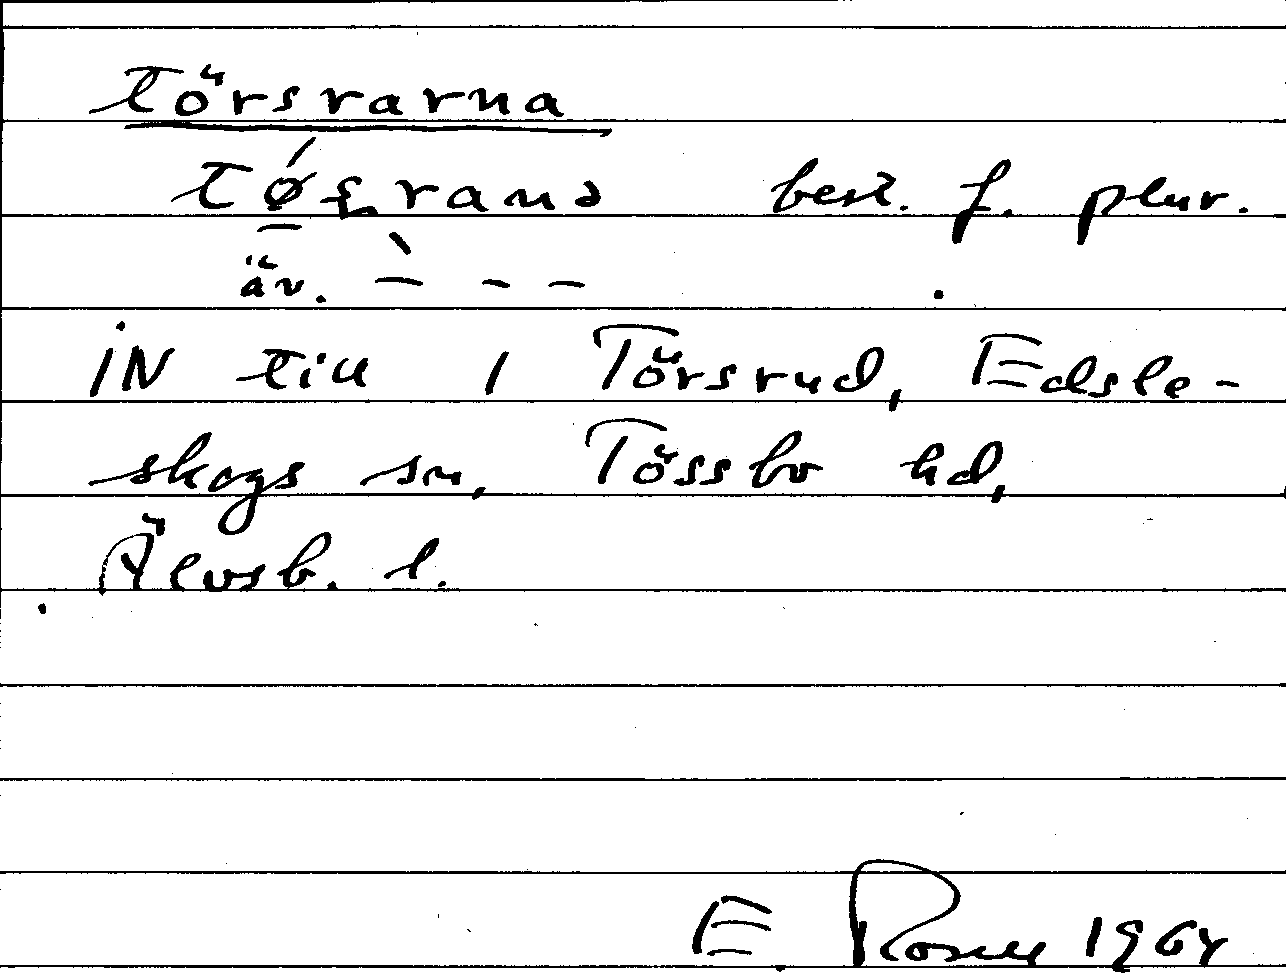 törsrarna
tǿ̲s̨ranə best. f. plur.
äv. –̀ - -
IN till 1 Törsrud, Edsle-
skogs sn, Tössbo hd,
Älvsb. l.
E. 1964